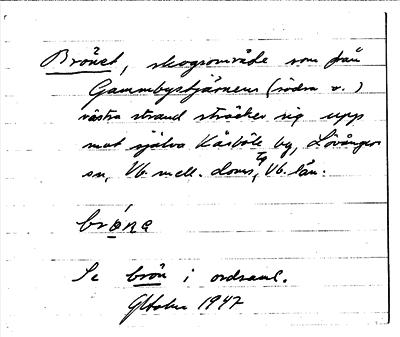 Brönet, skogsområde som från
Gammbystjärnens (södra o.)
västra strand sträcker sig upp
mot själva Kåsböle by, Lövångers
sn, Vb. mell. doms, Vb. län.
brönɐ
Se brön i ordsaml.
1947